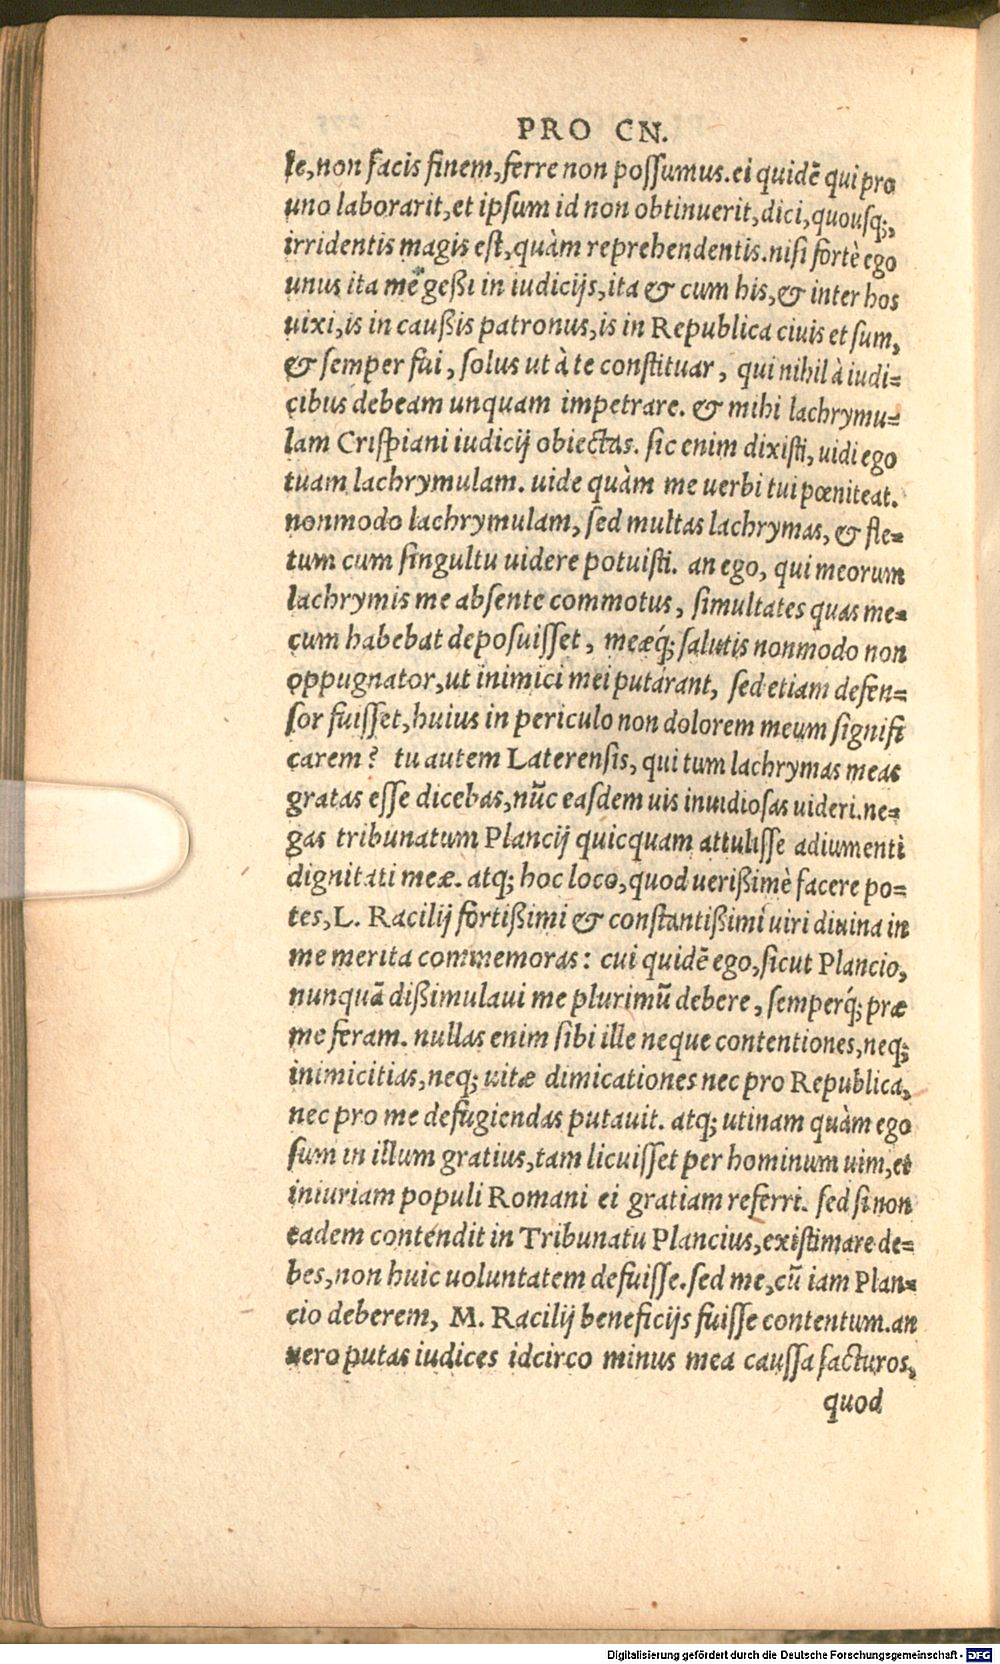 PRO CN.
le, non facis finem, ferre non possumus. ei quidē qui pro
uno laborarit, et ipsum id non obtinuerit, dici, quousq;,
irridentis magis est, quàm reprehendentis. nisi fortè ego
unus ita me gessi in iudicijs, ita & cum his, & inter hos
uixi, is in caussis patronus, is in Republica ciuis et sum,
& semper fui, solus ut à te constituar, qui nihil à iudi=
cibus debeam unquam impetrare. & mihi lachrymu=
lam Crispiani iudicij obiectas. sic enim dixisti, uidi ego
tuam lachrymulam. uide quàm me uerbi tui pœniteat.
nonmodo lachrymulam, sed multas lachrymas, & fle=
tum cum singultu uidere potuisti. an ego, qui meorum
lachrymis me absente commotus, simultates quas me=
cum habebat deposuisset, meæq́; salutis nonmodo non
oppugnator, ut inimici mei putárant, sed etiam defen=
sor fuisset, huius in periculo non dolorem meum signifi
carem? tu autem Laterensis, qui tum lachrymas meas
gratas esse dicebas, nūc easdem uis inuidiosas uideri. ne=
gas tribunatum Plancij quicquam attulisse adiumenti
dignitati meæ. atq; hoc loco, quod uerissimè facere po=
tes, L. Racilij fortissimi & constantissimi uiri diuina in
me merita commemoras: cui quidē ego, sicut Plancio,
nunquā dissimulaui me plurimū debere, semperq́; præ
me feram. nullas enim sibi ille neque contentiones, neq;
inimicitias, neq; uitæ dimicationes nec pro Republica,
nec pro me defugiendas putauit. atq; utinam quàm ego
sum in illum gratius, tam licuisset per hominum uim, et
iniuriam populi Romani ei gratiam referri. sed si non
eadem contendit in Tribunatu Plancius, existimare de=
bes, non huic uoluntatem defuisse. sed me, cū iam Plan=
cio deberem, M. Racilij beneficijs fuisse contentum. an
uero putas iudices idcirco minus mea caussa facturos,
quod
Digitalisierung gefördert durch die Deutsche Forschungsgemeinschaft - DFG